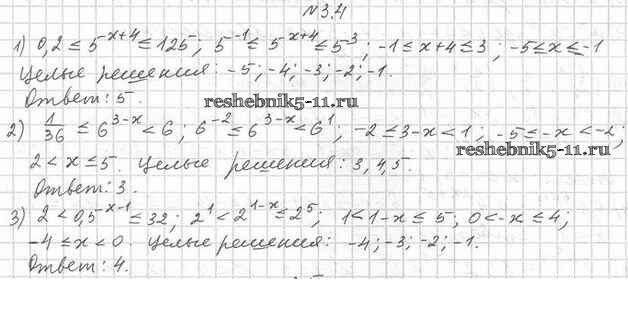 №3.4
1) 0,2 ≤ 5^{x+4} ≤ 125; 5^{-1} ≤ 5^{x+4} ≤ 5^3; -1 ≤ x+4 ≤ 3; -5 ≤ x ≤ -1
Целые решения: -5; -4; -3; -2; -1.
Ответ: 5.
reshebnik5-11.ru
2) 1/36 ≤ 6^{3-x} < 6; 6^{-2} ≤ 6^{3-x} < 6^1; -2 ≤ 3-x < 1; -5 ≤ -x < -2;
reshebnik5-11.ru
2 < x ≤ 5. Целые решения: 3, 4, 5.
Ответ: 3.
3) 2 < 0,5^{x-1} ≤ 32; 2^1 < 2^{1-x} ≤ 2^5; 1 < 1-x ≤ 5; 0 < -x ≤ 4;
-4 ≤ x < 0. Целые решения: -4; -3; -2; -1.
Ответ: 4.